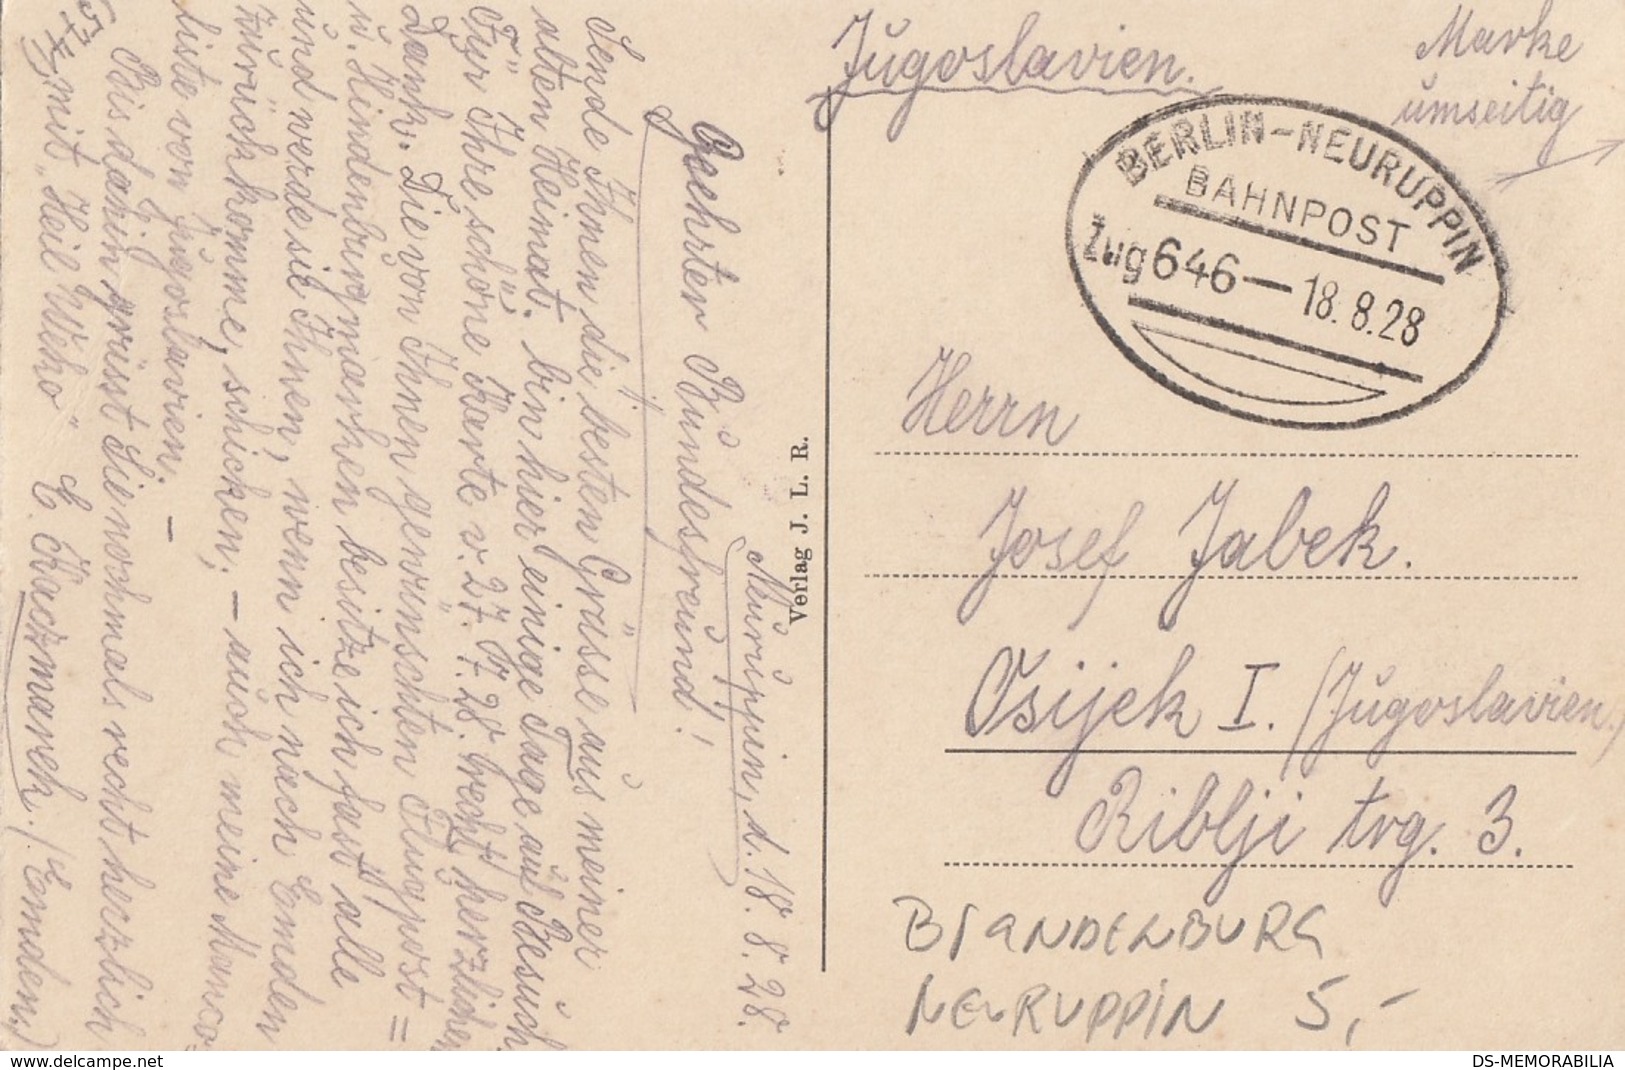 Jugoslavien.
Marke
umseitig
BERLIN-NEURUPPIN
BAHNPOST
Zug 646 — 18.8.28
Herrn
Josef Jabek.
Osijek I. (Jugoslavien.)
Riblji trg. 3.
BRANDENBURG
NEURUPPIN 5,-
Verlag J. L. R.
Neuruppin, d. 18. 8. 28.
Geehrter Bundesfreund!
Sende Ihnen die besten Grüsse aus meiner
alten Heimat. bin hier einige Tage auf Besuch
Für Ihre schöne Karte v. 27. 7. 28. recht herzlichen
Dank. Die von Ihnen gewünschten Flugpost=
u. Hindenburgmarken besitze ich fast alle
und werde sie Ihnen, wenn ich nach Emden
zurückkomme, schicken. — auch meine Manco-
liste von Jugoslavien. —
Bis dahin grüsst Sie nochmals recht herzlich
mit "Heil Weho" E. Kaczmarek. (Emden)
DS-MEMORABILIA